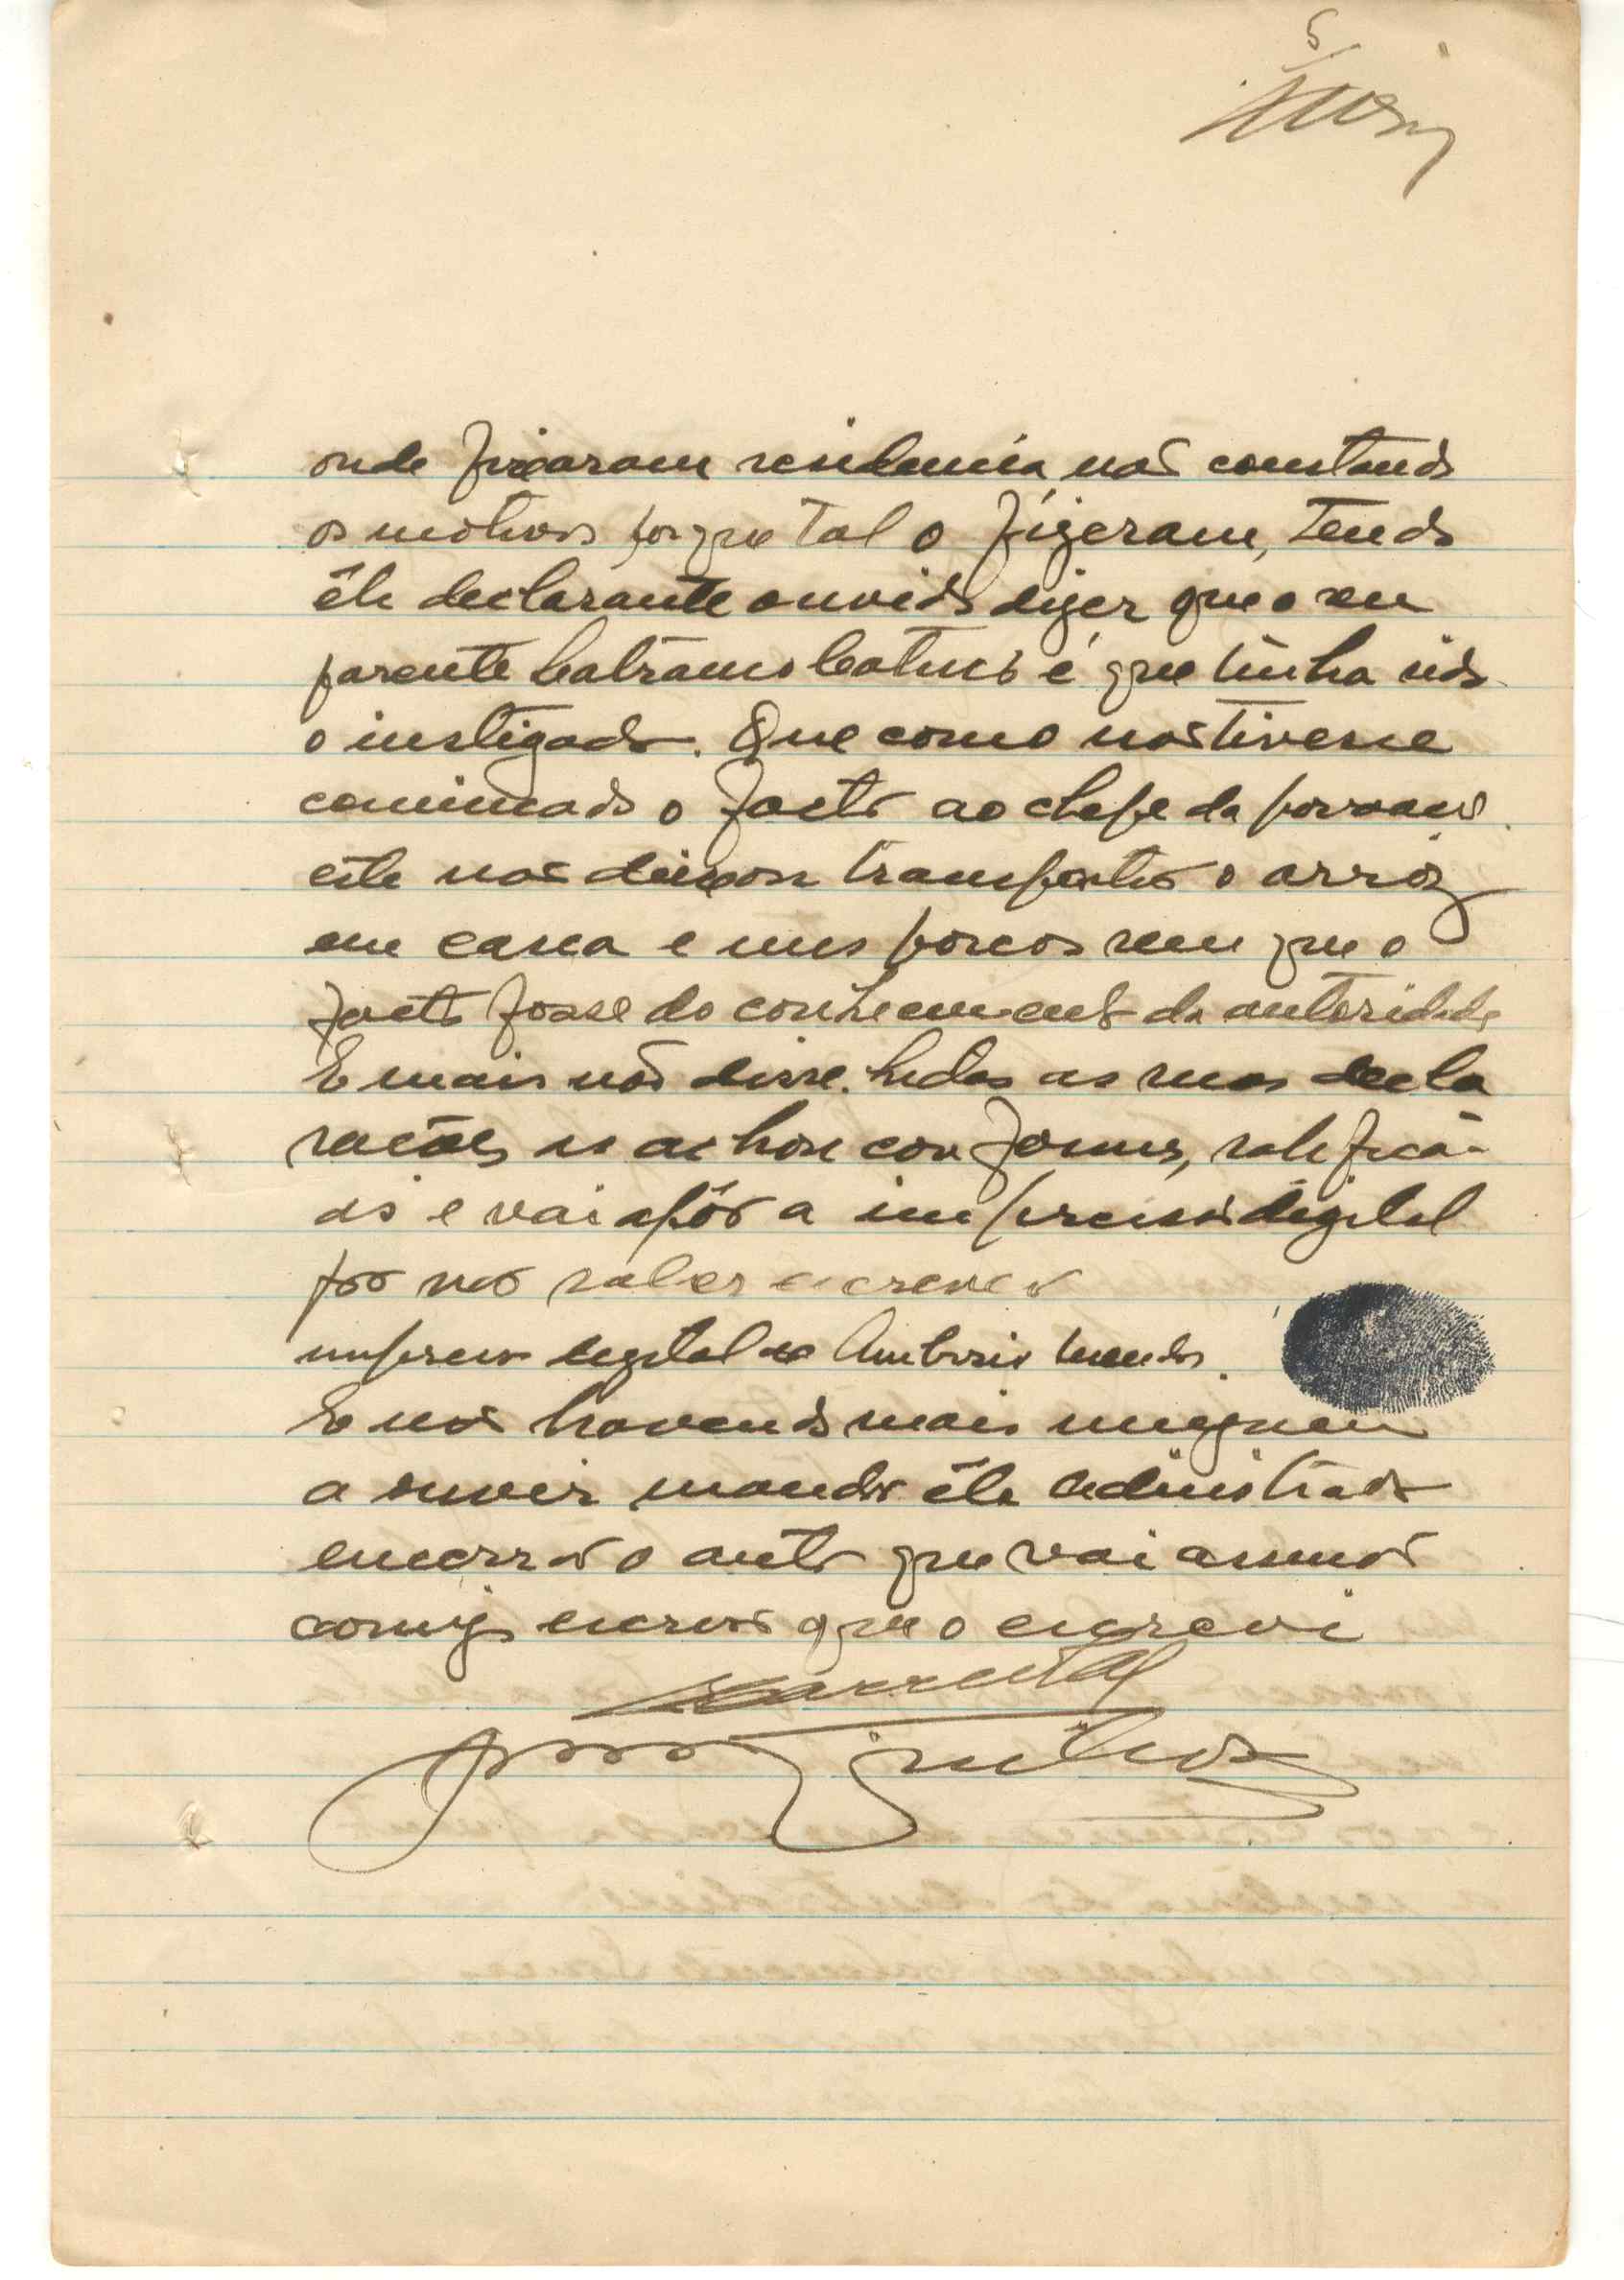 5
onde fixaram residencia, não constando
os motivos porque tal o fizeram, tendo
êle declarante ouvido dizer que o seu
parente é que tinha sido
o instigador. Que como não tivesse
comunicado o facto ao chefe da povoação
êste não deixou transportar o arroz
em casca e uns porcos sem que o
facto fosse do conhecimento da autoridade
E mais não disse. Lidas as suas decla
rações as achou conformes, ratificá-
as e vai apôr a impressão digital
por não saber escrever
impressão digital de Ambrosio Mendes.
E não havendo mais ninguem
a ouvir mandou êle administrador
encerrar o auto que vai assinar
comigo escrivão que o escrevi